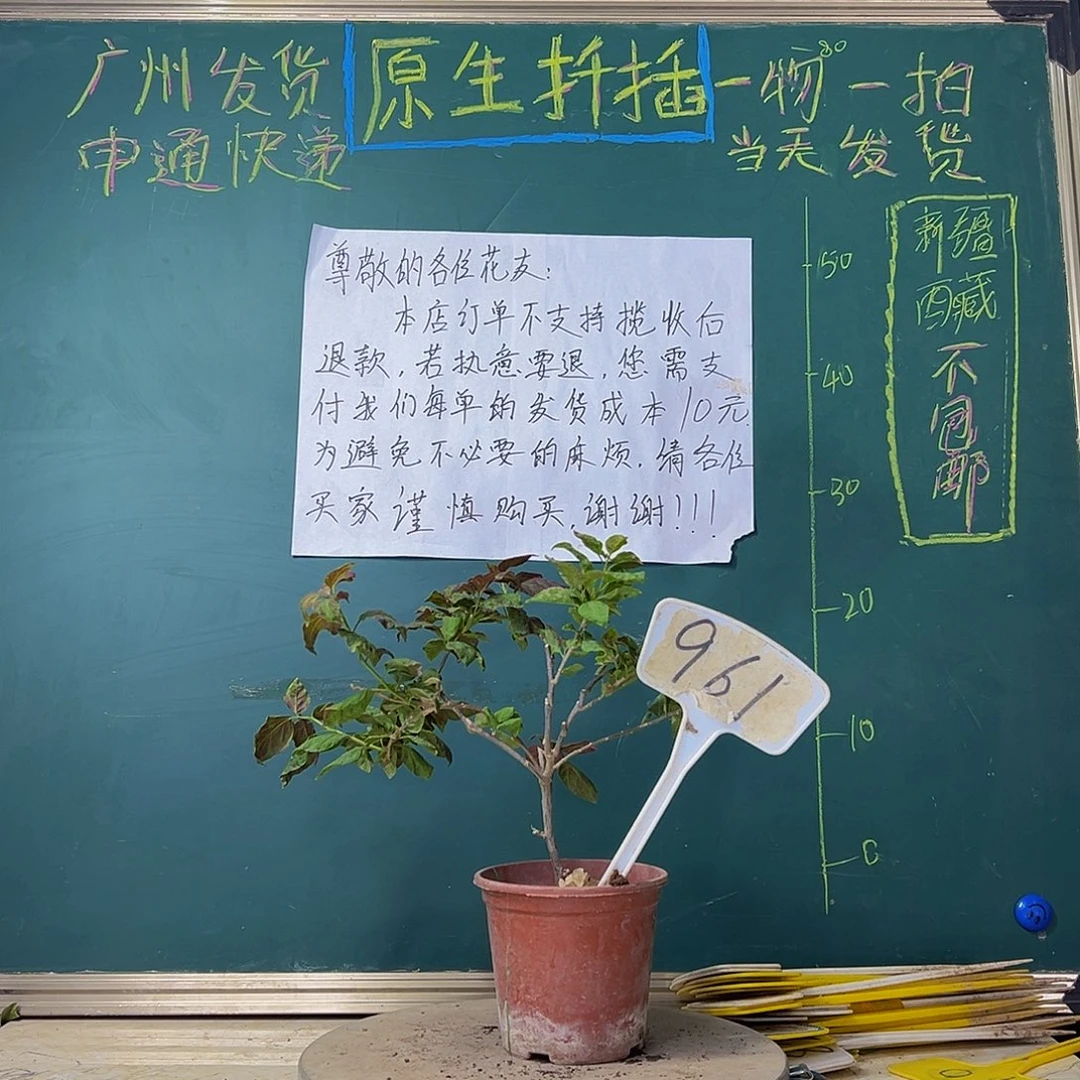 广州发货
申通快递
原生扦插
一物一拍
当天发货
新疆
西藏
不包邮
尊敬的各位花友：
本店订单不支持揽收后
退款，若执意要退，您需支
付我们每单的发货成本10元.
为避免不必要的麻烦.请各位
买家谨慎购买,谢谢!!!
50
40
30
20
10
0
961